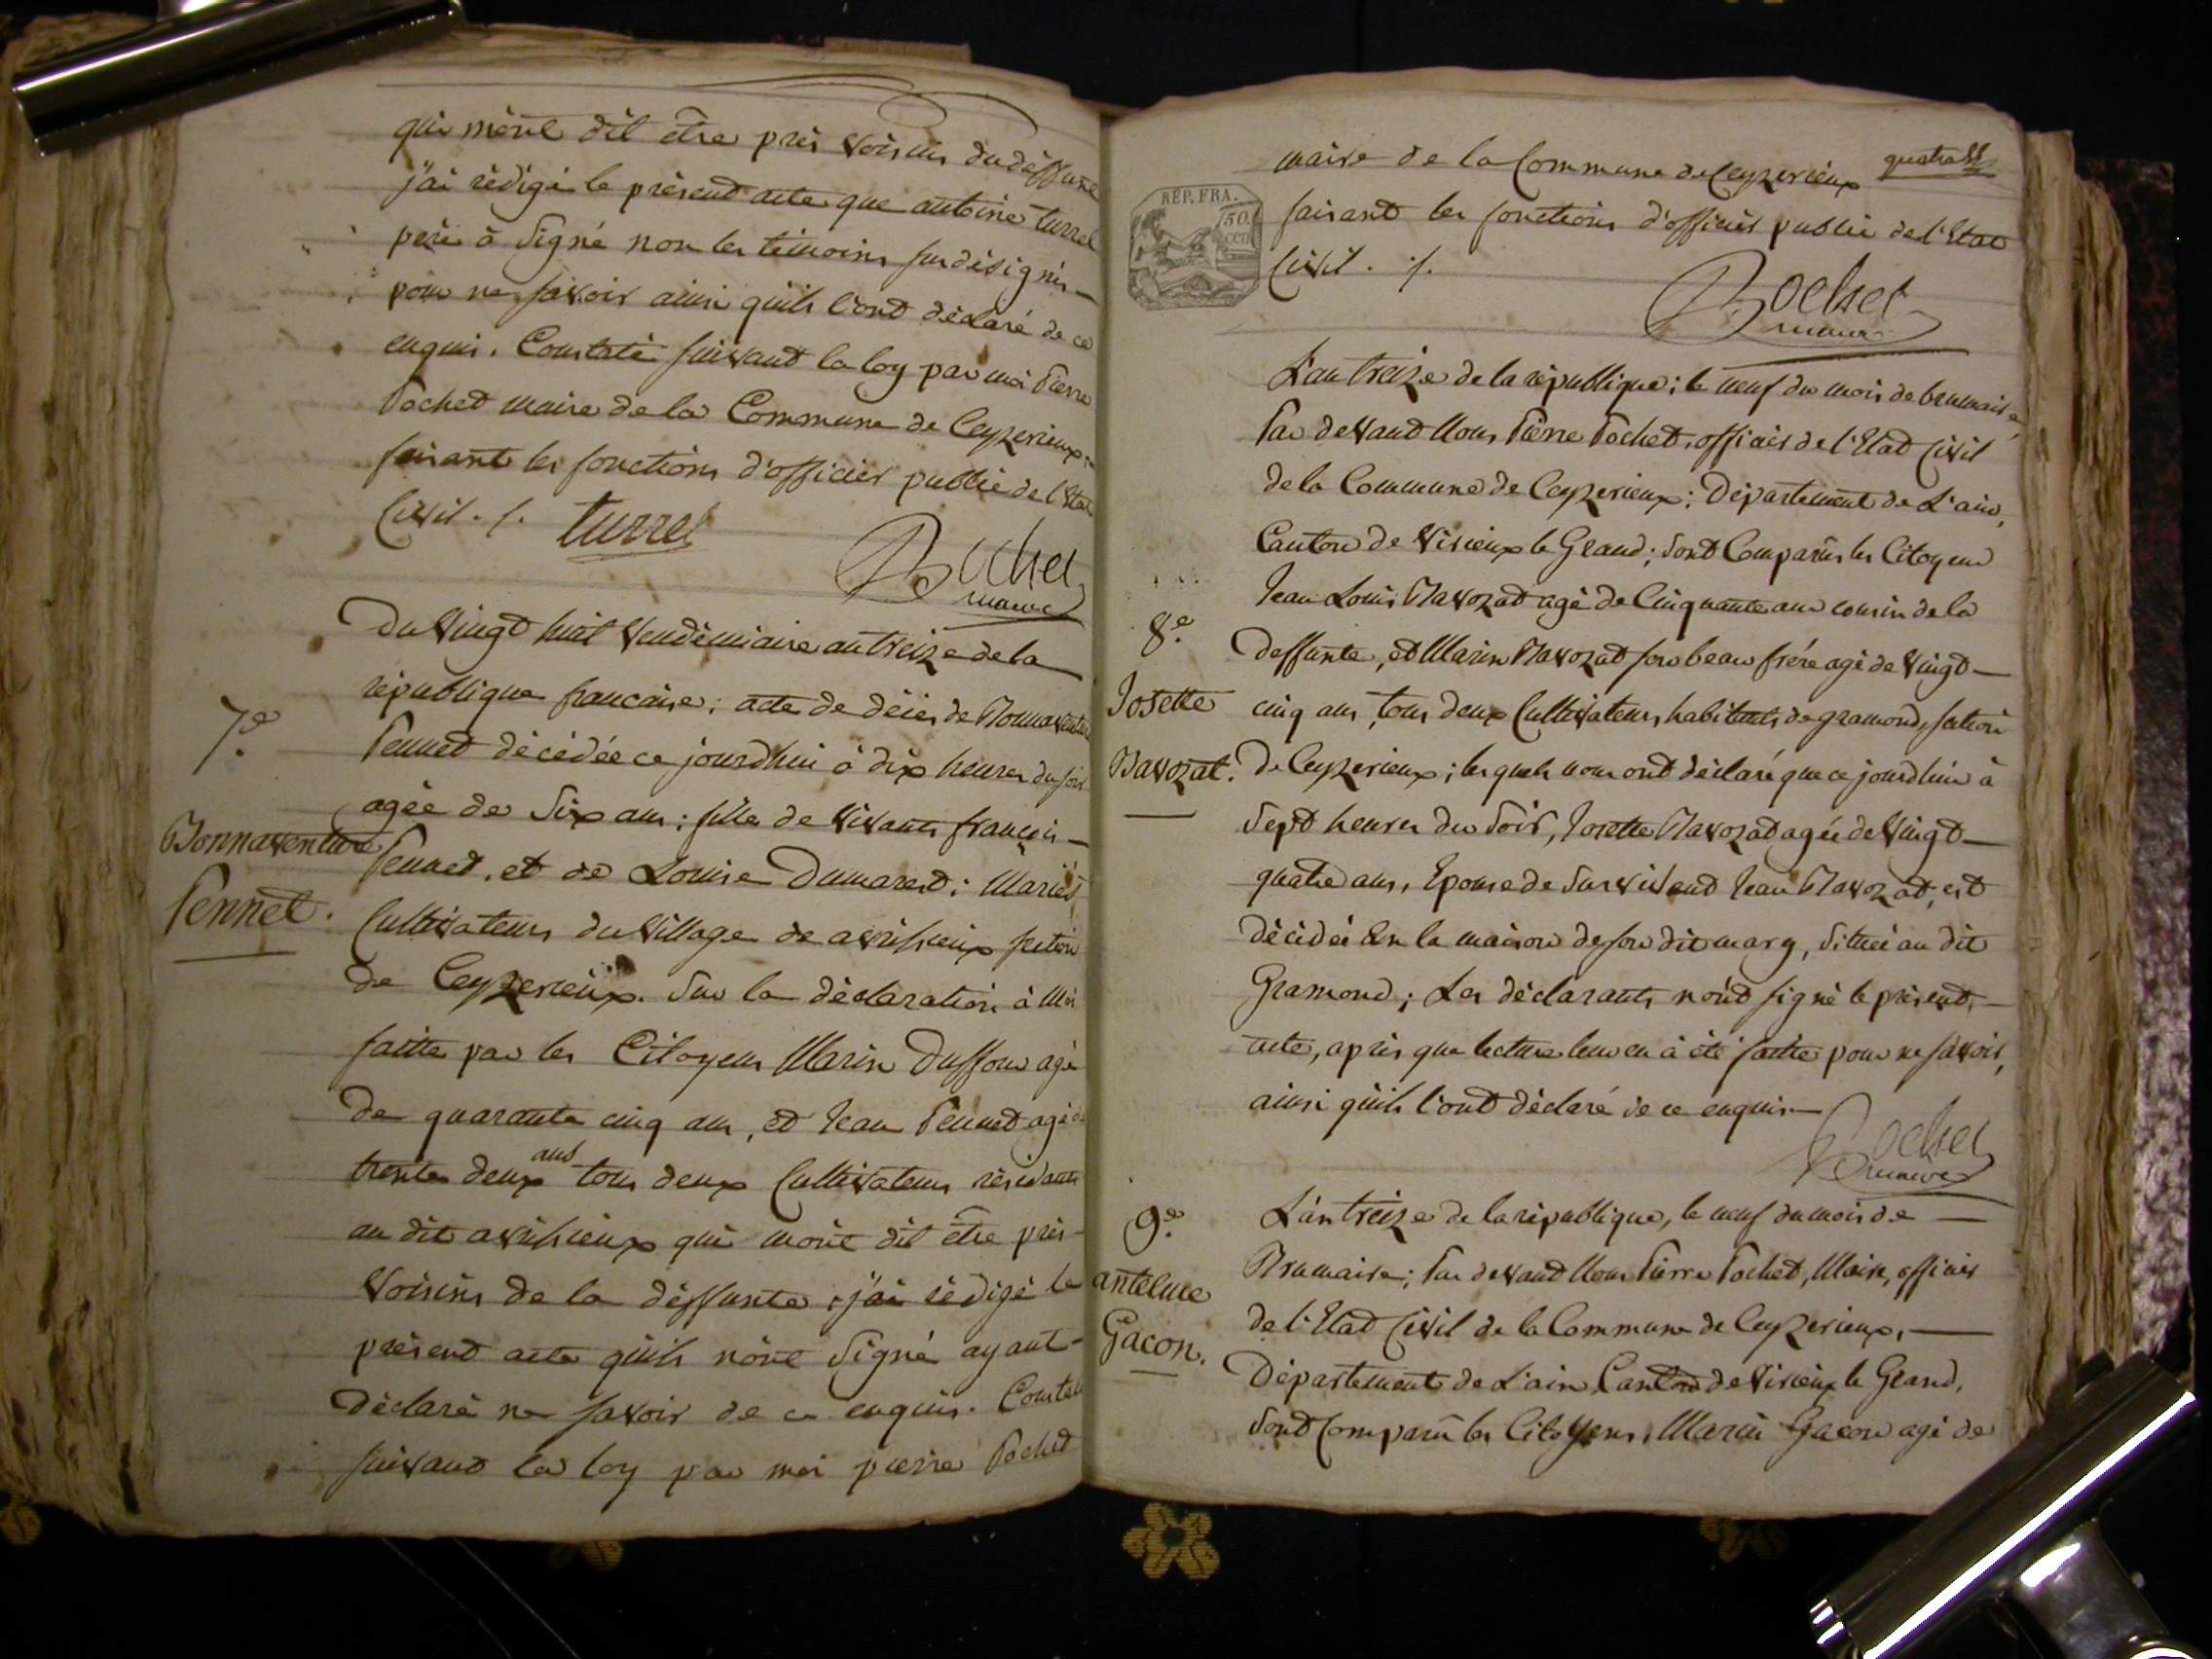 qui mont dit être près voisins du deffunt
j'ai rédigé le présent acte que antoine turrel
père à signé non les témoins susdésignés
pour ne savoir ainsi quils l'ont déclaré de ce
enquis. Constaté suivant la loy par moi Pierre
Pochet maire de la Commune de Ceyzerieux,
faisant les fonctions d'officier public de l'Etat
Civil. /. turrel
Pochet
maire
Du vingt huit vendémiaire an treize de la
république francaise; acte de décès de Bonnaventure
7.e
Pennet décédée ce jourdhui à dix heures du soir
agée de six ans; fille de vivants françois
Bonnaventure
Pennet, et de Louise Dumarest; Mariés
Pennet.
Cultivateurs du village de avrissieux section
de Ceyzerieux. Sur la déclaration à Moi
faitte par les Citoyens Marin Duffour agé
de quarante cinq ans, et Jean Pennet agé de
ans
trente deux tous deux Cultivateurs résidants
au dit avrissieux qui mont dit être près
voisins de la deffunte; j'ai rédigé le
présent acte quils nont signé ayant
déclaré ne savoir de ce enquis. Constaté
suivant la loy par moi pierre Pochet
maire de la Commune de Ceyzerieux
RÉP. FRA.
50
cent
faisant les fonctions d'officier public de l'Etat
Civil. /.
Pochet
maire
L'an treize de la république; le neuf du mois de brumaire,
Par devant Nous Pierre Pochet, officier de l'Etat Civil
de la Commune de Ceyzerieux; Département de L'ain,
Canton de Virieux le Grand; sont Comparus les Citoyens
Jean Louis Bavozat agé de Cinquante ans cousin de la
8.e
deffunte, et Marin Bavozat son beau frére agé de vingt
Josette
cinq ans, tous deux Cultivateurs habitants de gramond, section
Bavozat.
de Ceyzerieux; les quels nous ont déclaré que ce jourdhui à
sept heures du soir, Josette Bavozat agée de vingt
quatre ans, Epouse de survivant Jean Bavozat, est
décédée En la maison de son dit mary, située au dit
Gramond; Les déclarants n'ont signé le présent
acte, après que lecture leur en à été faitte pour ne savoir,
ainsi quils l'ont déclaré de ce enquis
Pochet
maire
9.e
L'an treize de la république, le neuf du mois de
Brumaire; Par devant Nous Pierre Pochet, Maire, officier
antelme
de l'Etat Civil de la Commune de Ceyzerieux,
Gacon.
Département de L'ain, Canton de Virieux le Grand,
sont Comparu les Citoyens, Marin Gacon agé de